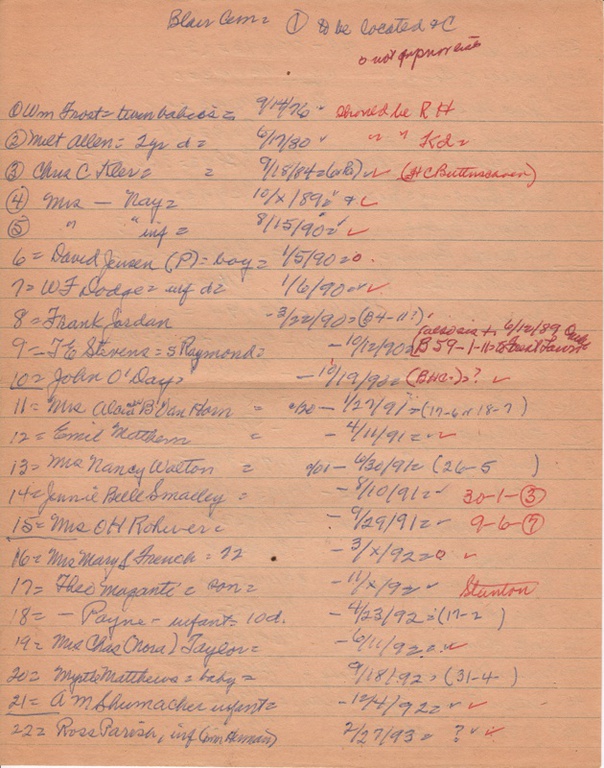 Blair Cem = ① to be located & C
o not
① Wm Frost = twin babies = 9/14/76 ✓ should be R H
② Milt Allen = 2yr d = 6/17/80 ✓ " " Kd =
③ Chris C Kler = = 9/18/84 = ✓ ✓
④ Mrs — Nay = 10/x/89 = ✓ ✓
⑤ " " inf = 8/15/90 = ✓ ✓
6 = David Jensen (P) = boy = 1/5/90 = o .
7 = W F Dodge = inf d = 1/6/90 = ✓ ✓
8 = Frank Jordan - 3/22/90 = (B4-11?)
6/12/89
9 - T E Stevens = s Raymond = - 10/12/90 = B 59-1-11 =
10 = John O'Day = - 10/19/90 = ? ✓
11 = Mrs B Van Horn = - 1/27/91 = (17-6 or 18-7)
12 = Emil = - 4/11/91 = ✓ ✓
13 = Mrs Nancy Wolton = - 6/30/91 = (26-5 )
14 = Jennie Bell Smalley = - 8/10/91 = ✓ 30-1-③
15 = Mrs O H Rohwer = - 9/29/91 = ✓ 9-6-⑦
16 = Mrs Mary S French = 72 - 3/x/92 = o ✓
17 = Theo = son = - 11/x/9 = ✓ Stanton
18 = - Payne - infant = 10d. - 4/23/92 = (17-2 )
19 = Mrs Chas (Nora) Taylor = - 6/11/92 = . ✓
20 = Myrtle Matthews = baby = 9/18/92 = (31-4- )
21 = A M Shumacher infant = - 12/4/92 = ✓ ✓
22 = Ross Parish, inf 2/27/93 = ? ✓ ✓